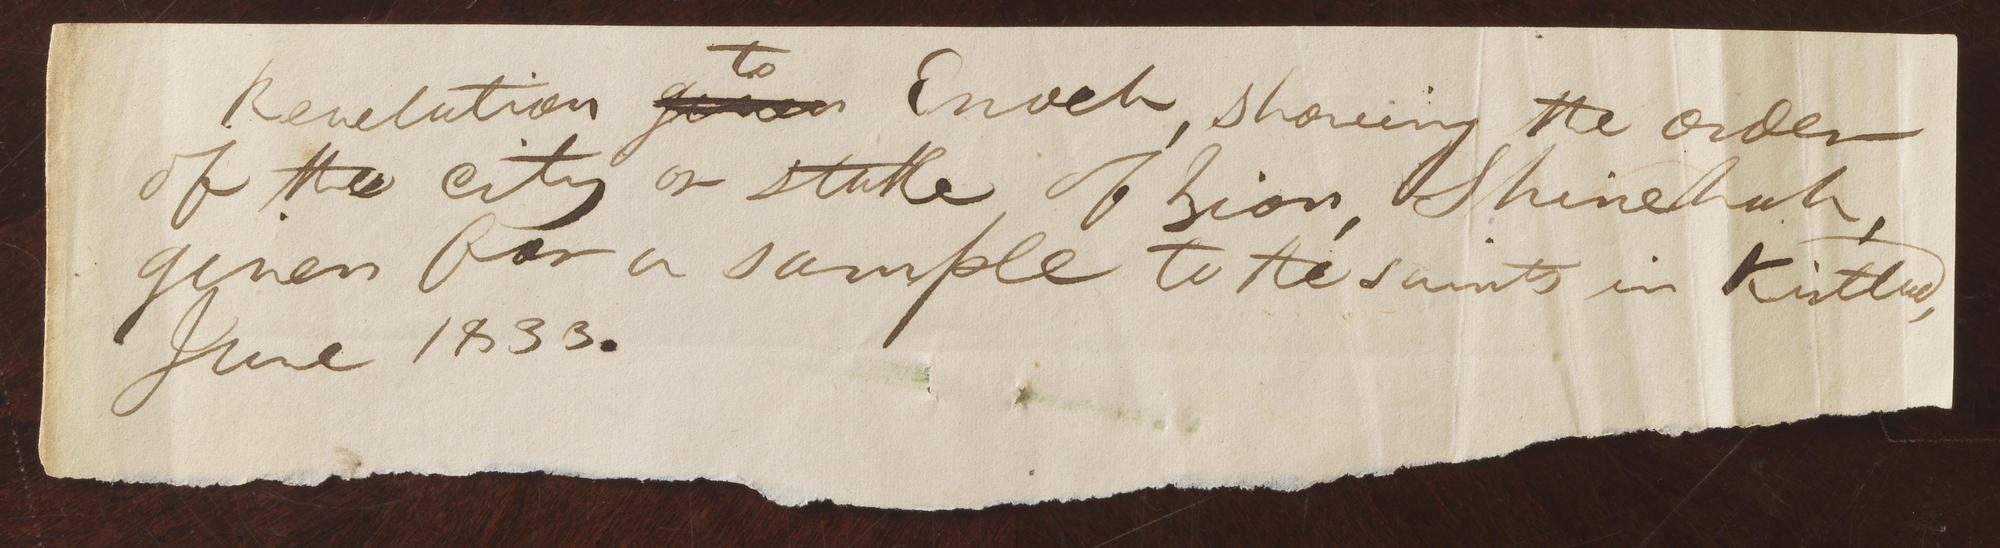 Revelation ~~given~~ to Enoch, showing the order
of the city or stake of Zion, Shinehah,
given for a sample to the saints in Kirtland,
June 1833.